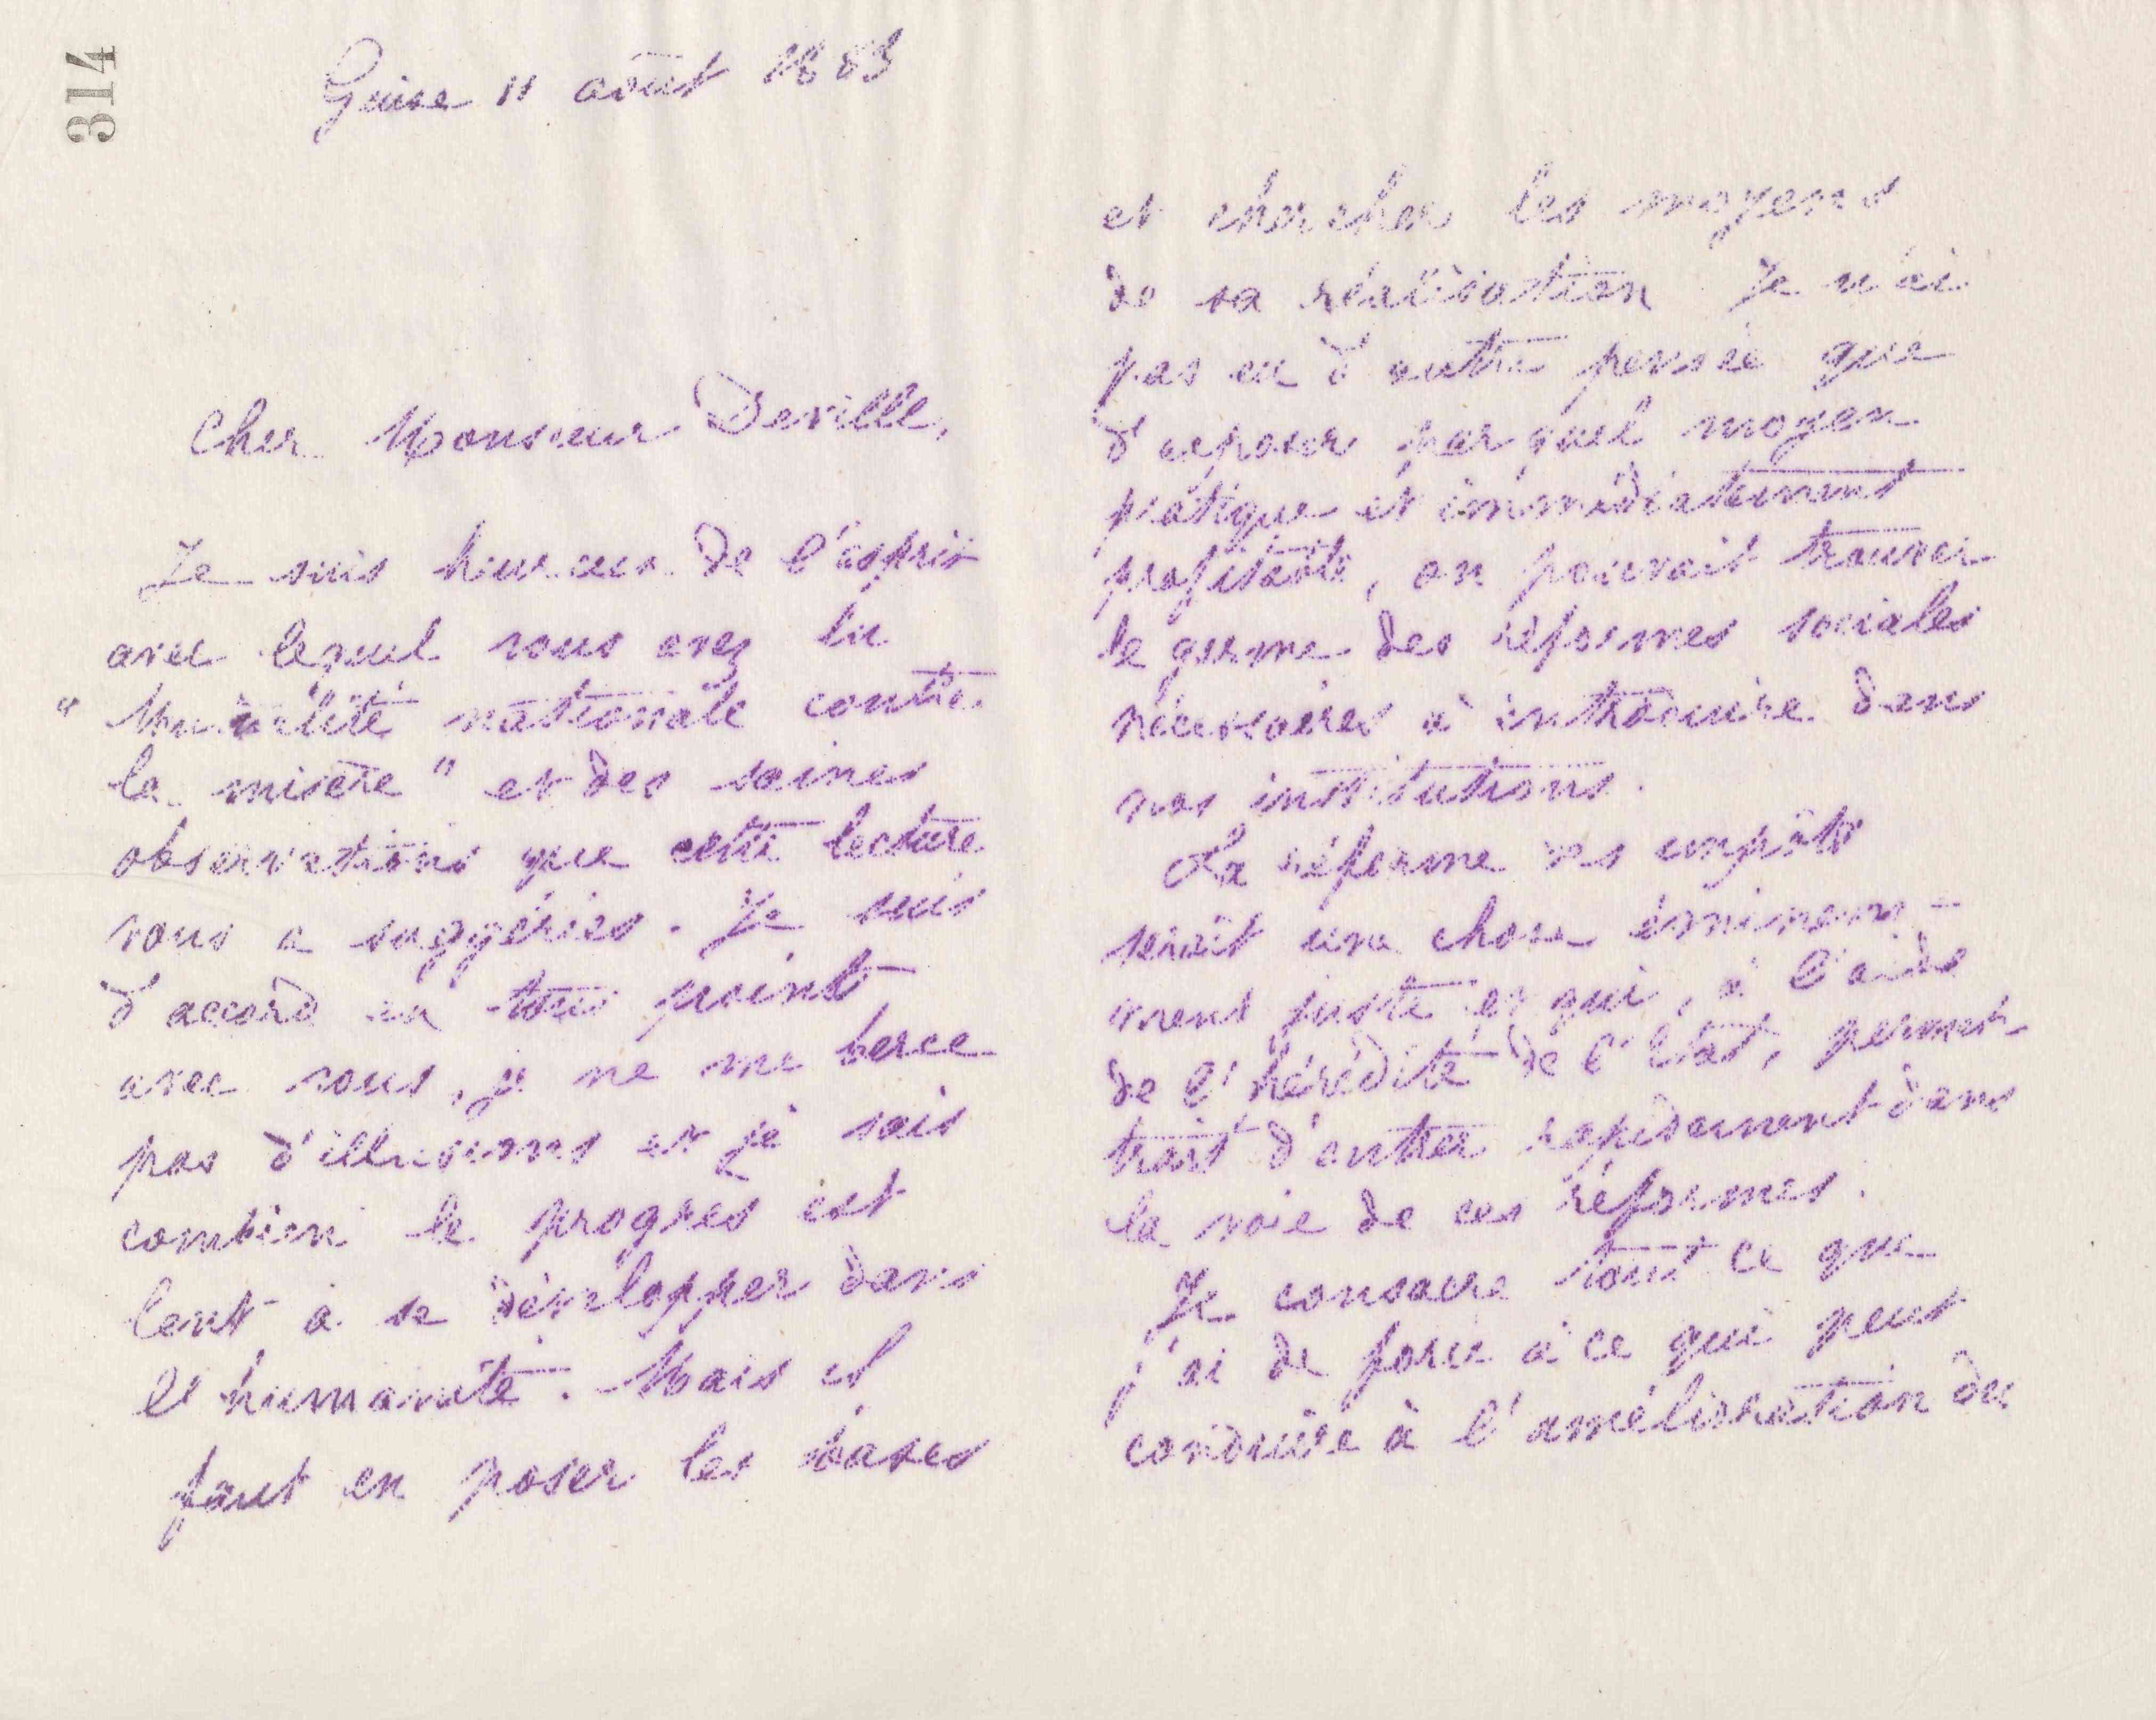 314
Guise 11 août 1883
Cher Monsieur Deville,
Je suis heureux de l'esprit
avec lequel vous avez lu
"Mutualité nationale contre
la misère" et des saines
observations que cette lecture
vous a suggérées. Je suis
d'accord en tous points
avec vous, je ne me berce
pas d'illusions et je sais
combien le progrès est
lent à se développer dans
l'humanité. Mais il
faut en poser les bases
et chercher les moyens
de sa réalisation Je n'ai
pas eu d'autre pensée que
d'exposer par quel moyen
pratique et immédiatement
profitable, on pouvait trouver
le germe des réformes sociales
nécessaires à introduire dans
nos institutions.
La réforme des impôts
serait une chose éminem-
ment juste et qui, à l'aide
de l'hérédité de l'Etat, permet-
trait d'entrer rapidement dans
la voie de ces réformes.
Je consacre tout ce que
j'ai de force à ce qui peut
conduire à l'amélioration du